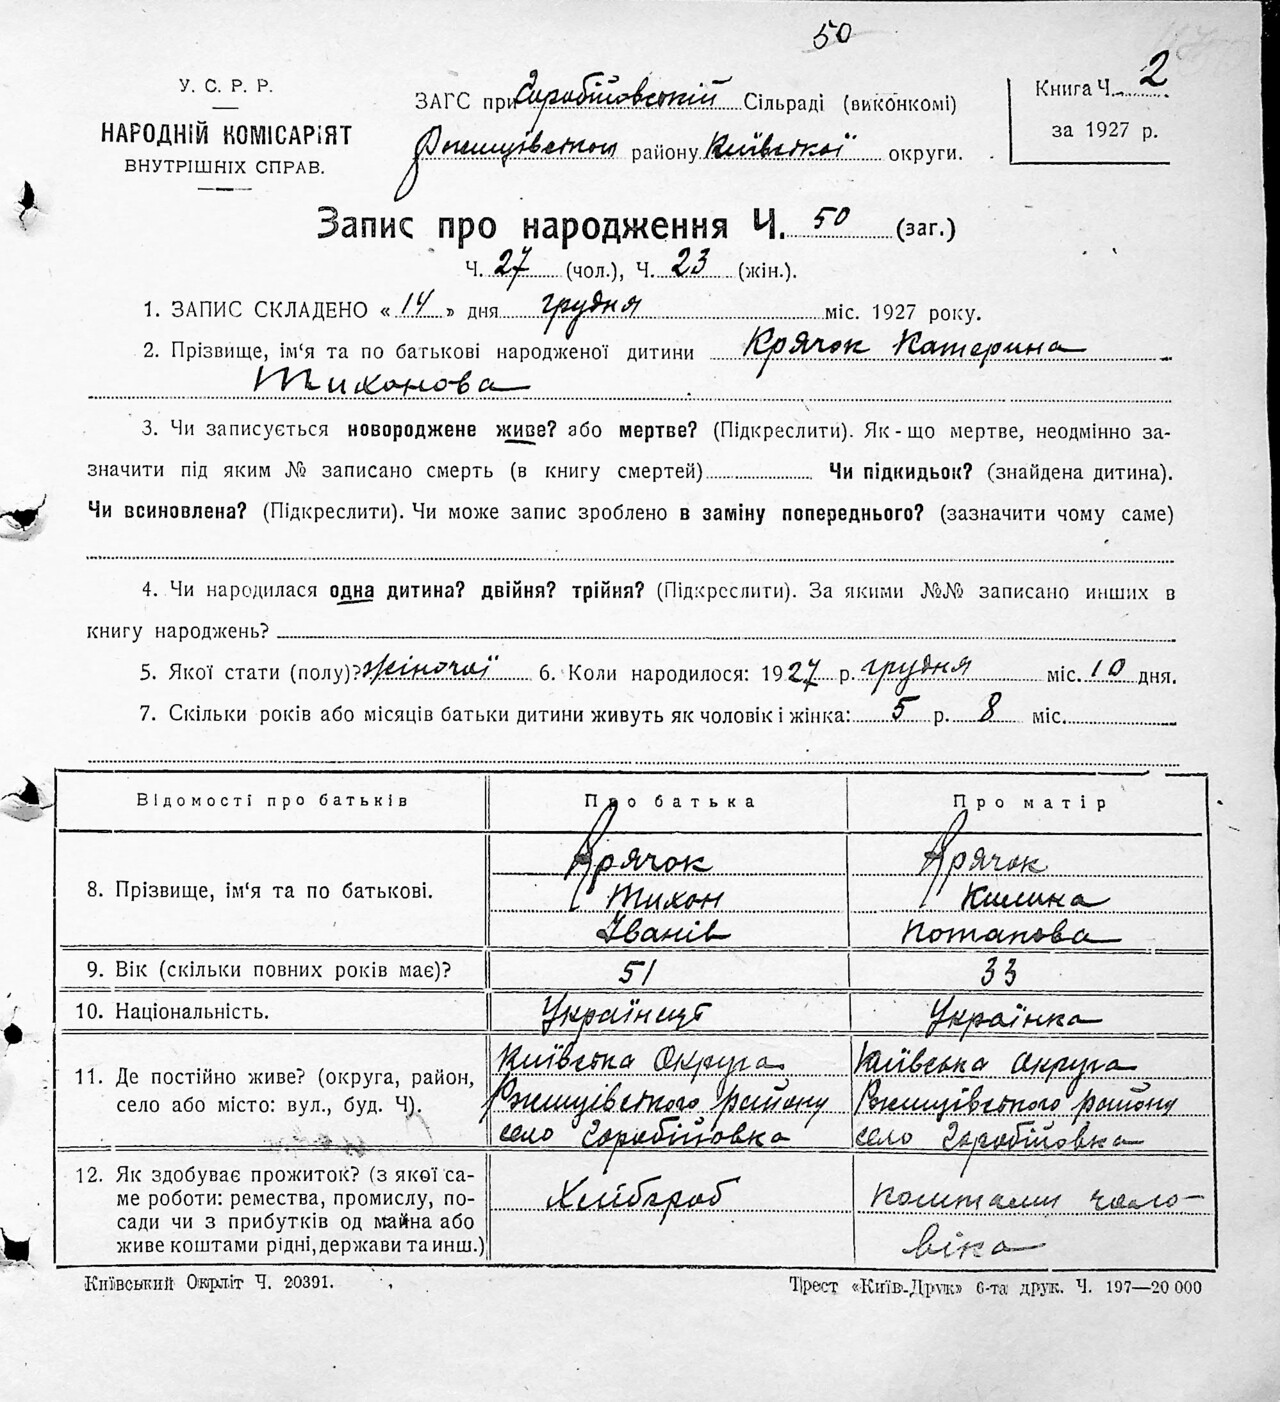 50
У. С. Р. Р.
НАРОДНІЙ КОМІСАРІЯТ
ВНУТРІШНІХ СПРАВ.
ЗАГС при Горобіївській Сільраді (виконкомі)
Ржищівського району Київської округи.
Книга Ч. 2
за 1927 р.
Запис про народження Ч. 50 (заг.)
Ч. 27 (чол.), Ч. 23 (жін.).
1. ЗАПИС СКЛАДЕНО « 14 » дня грудня міс. 1927 року.
2. Прізвище, ім‘я та по батькові народженої дитини Крячок Катерина
Тихонова
3. Чи записується новороджене живе? або мертве? (Підкреслити). Як-що мертве, неодмінно за-
значити під яким № записано смерть (в книгу смертей) Чи підкидьок? (знайдена дитина).
Чи всиновлена? (Підкреслити). Чи може запис зроблено в заміну попереднього? (зазначити чому саме)
4. Чи народилася одна дитина? двійня? трійня? (Підкреслити). За якими №№ записано инших в
книгу народжень?
5. Якої стати (полу)? жіночої 6. Коли народилося: 1927 р. грудня міс. 10 дня.
7. Скільки років або місяців батьки дитини живуть як чоловік і жінка: 5 р. 8 міс.
Відомості про батьків Про батька Про матір
8. Прізвище, ім‘я та по батькові.
Крячок Крячок
Тихон Килина
Іванів Потапова
9. Вік (скільки повних років має)? 51 33
10. Національність. Українець Українка
11. Де постійно живе? (округа, район,
село або місто: вул., буд. Ч).
Київська Округа Київська Округа
Ржищівського району Ржищівського району
село Горобіївка село Горобіївка
12. Як здобуває прожиток? (з якої са-
ме роботи: ремества, промислу, по-
сади чи з прибутків од майна або
живе коштами рідні, держави та инш.)
Хлібороб коштами чоло-
віка
Київський Окрліт Ч. 20391.
Трест «Київ-Друк» 6-та друк. Ч. 197—20 000